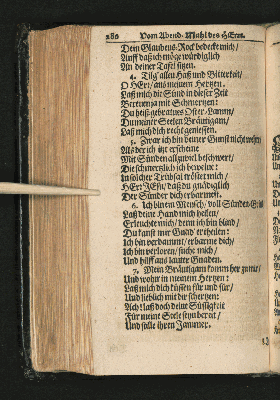 280 Vom Abend-Mahl des HErrn.
Dein Glaubens-Rock bedeckt mich/
Auff daß ich möge würdiglich
An deiner Tafel sitzen.
4. Tilg' allen Haß und Bitterkeit/
O HErr/ aus meinem Hertzen.
Laß mich die Sünd in dieser Zeit
Bereuen ja mit Schmertzen:
Du heiß-gebratnes Oster-Lamm/
Du meiner Seelen Bräutigam/
Laß mich dich recht geniessen.
5. Zwar ich bin deiner Gunst nicht wehrt/
Als der ich itzt erscheine
Mit Sünden allzuviel beschwert/
Die schmertzlich ich beweine:
In solcher Trübsal tröstet mich/
HErr JEsu/ daß du gnädiglich
Der Sünder dich erbarmest.
6. Ich bin ein Mensch/ voll Sünden
Laß deine Hand mich heilen/
Erleuchte mich/ denn ich bin blind/
Du kanst mir Gnad' ertheilen:
Ich bin verdammt/ erbarme dich/
Ich bin verloren/ suche mich/
Und hilff aus lauter Gnaden.
7. Mein Bräutigam komm her zu mir/
Und wohn' in meinem Hertzen:
Laß mich dich küssen für und für/
Und lieblich mit dir schertzen:
Ach! laß doch deine Süssigkeit
Für meine Seele seyn bereit/
Und stille ihren Jammer.